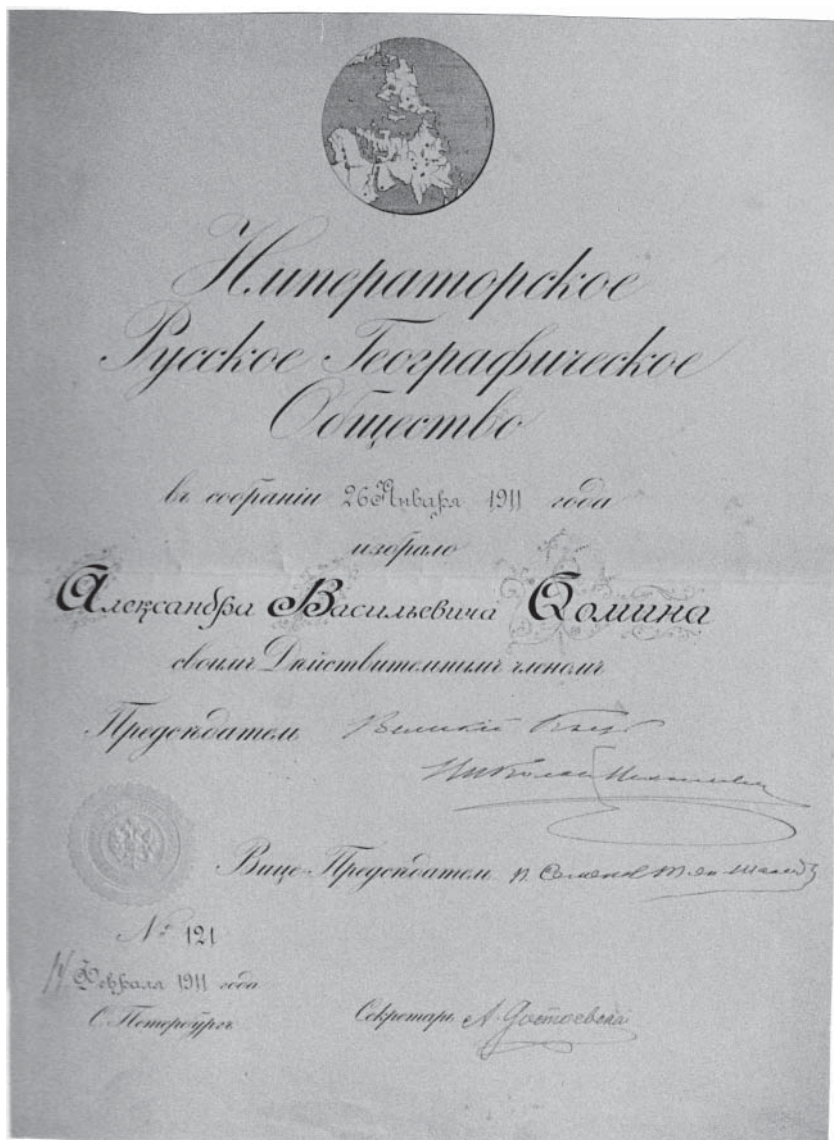 Императорское
Русское Географическое
Общество
въ собранiи 26 Января 1911 года
избрало
Александра Васильевича Ѳомина
своимъ Дѣйствительнымъ членомъ
Предсѣдатель Великій Князь
Николай Михаиловичъ
Вице-Предсѣдатель П. Семенов Тян-Шанскій
№ 121
14 Февраля 1911 года
С. Петербургъ
Секретарь А. Достоевскій